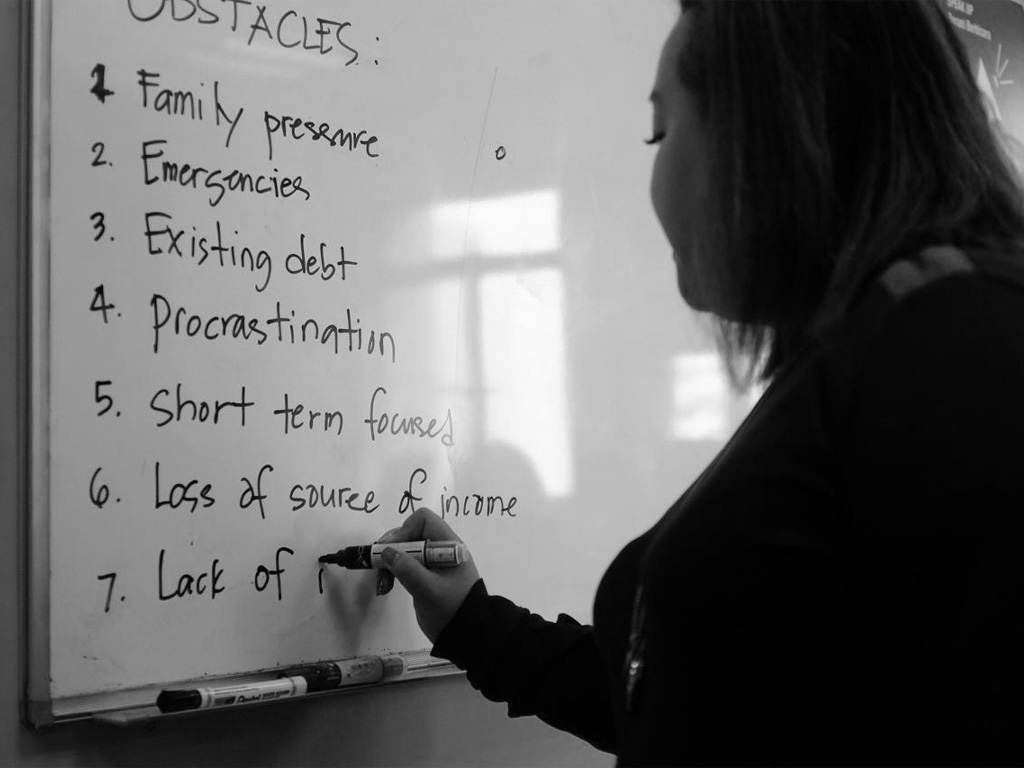 OBSTACLES:
1 Family pressure
2. Emergencies
3. Existing debt
4. Procrastination
5. Short term focused
6. Loss of source of income
7. Lack of
SPEAK UP